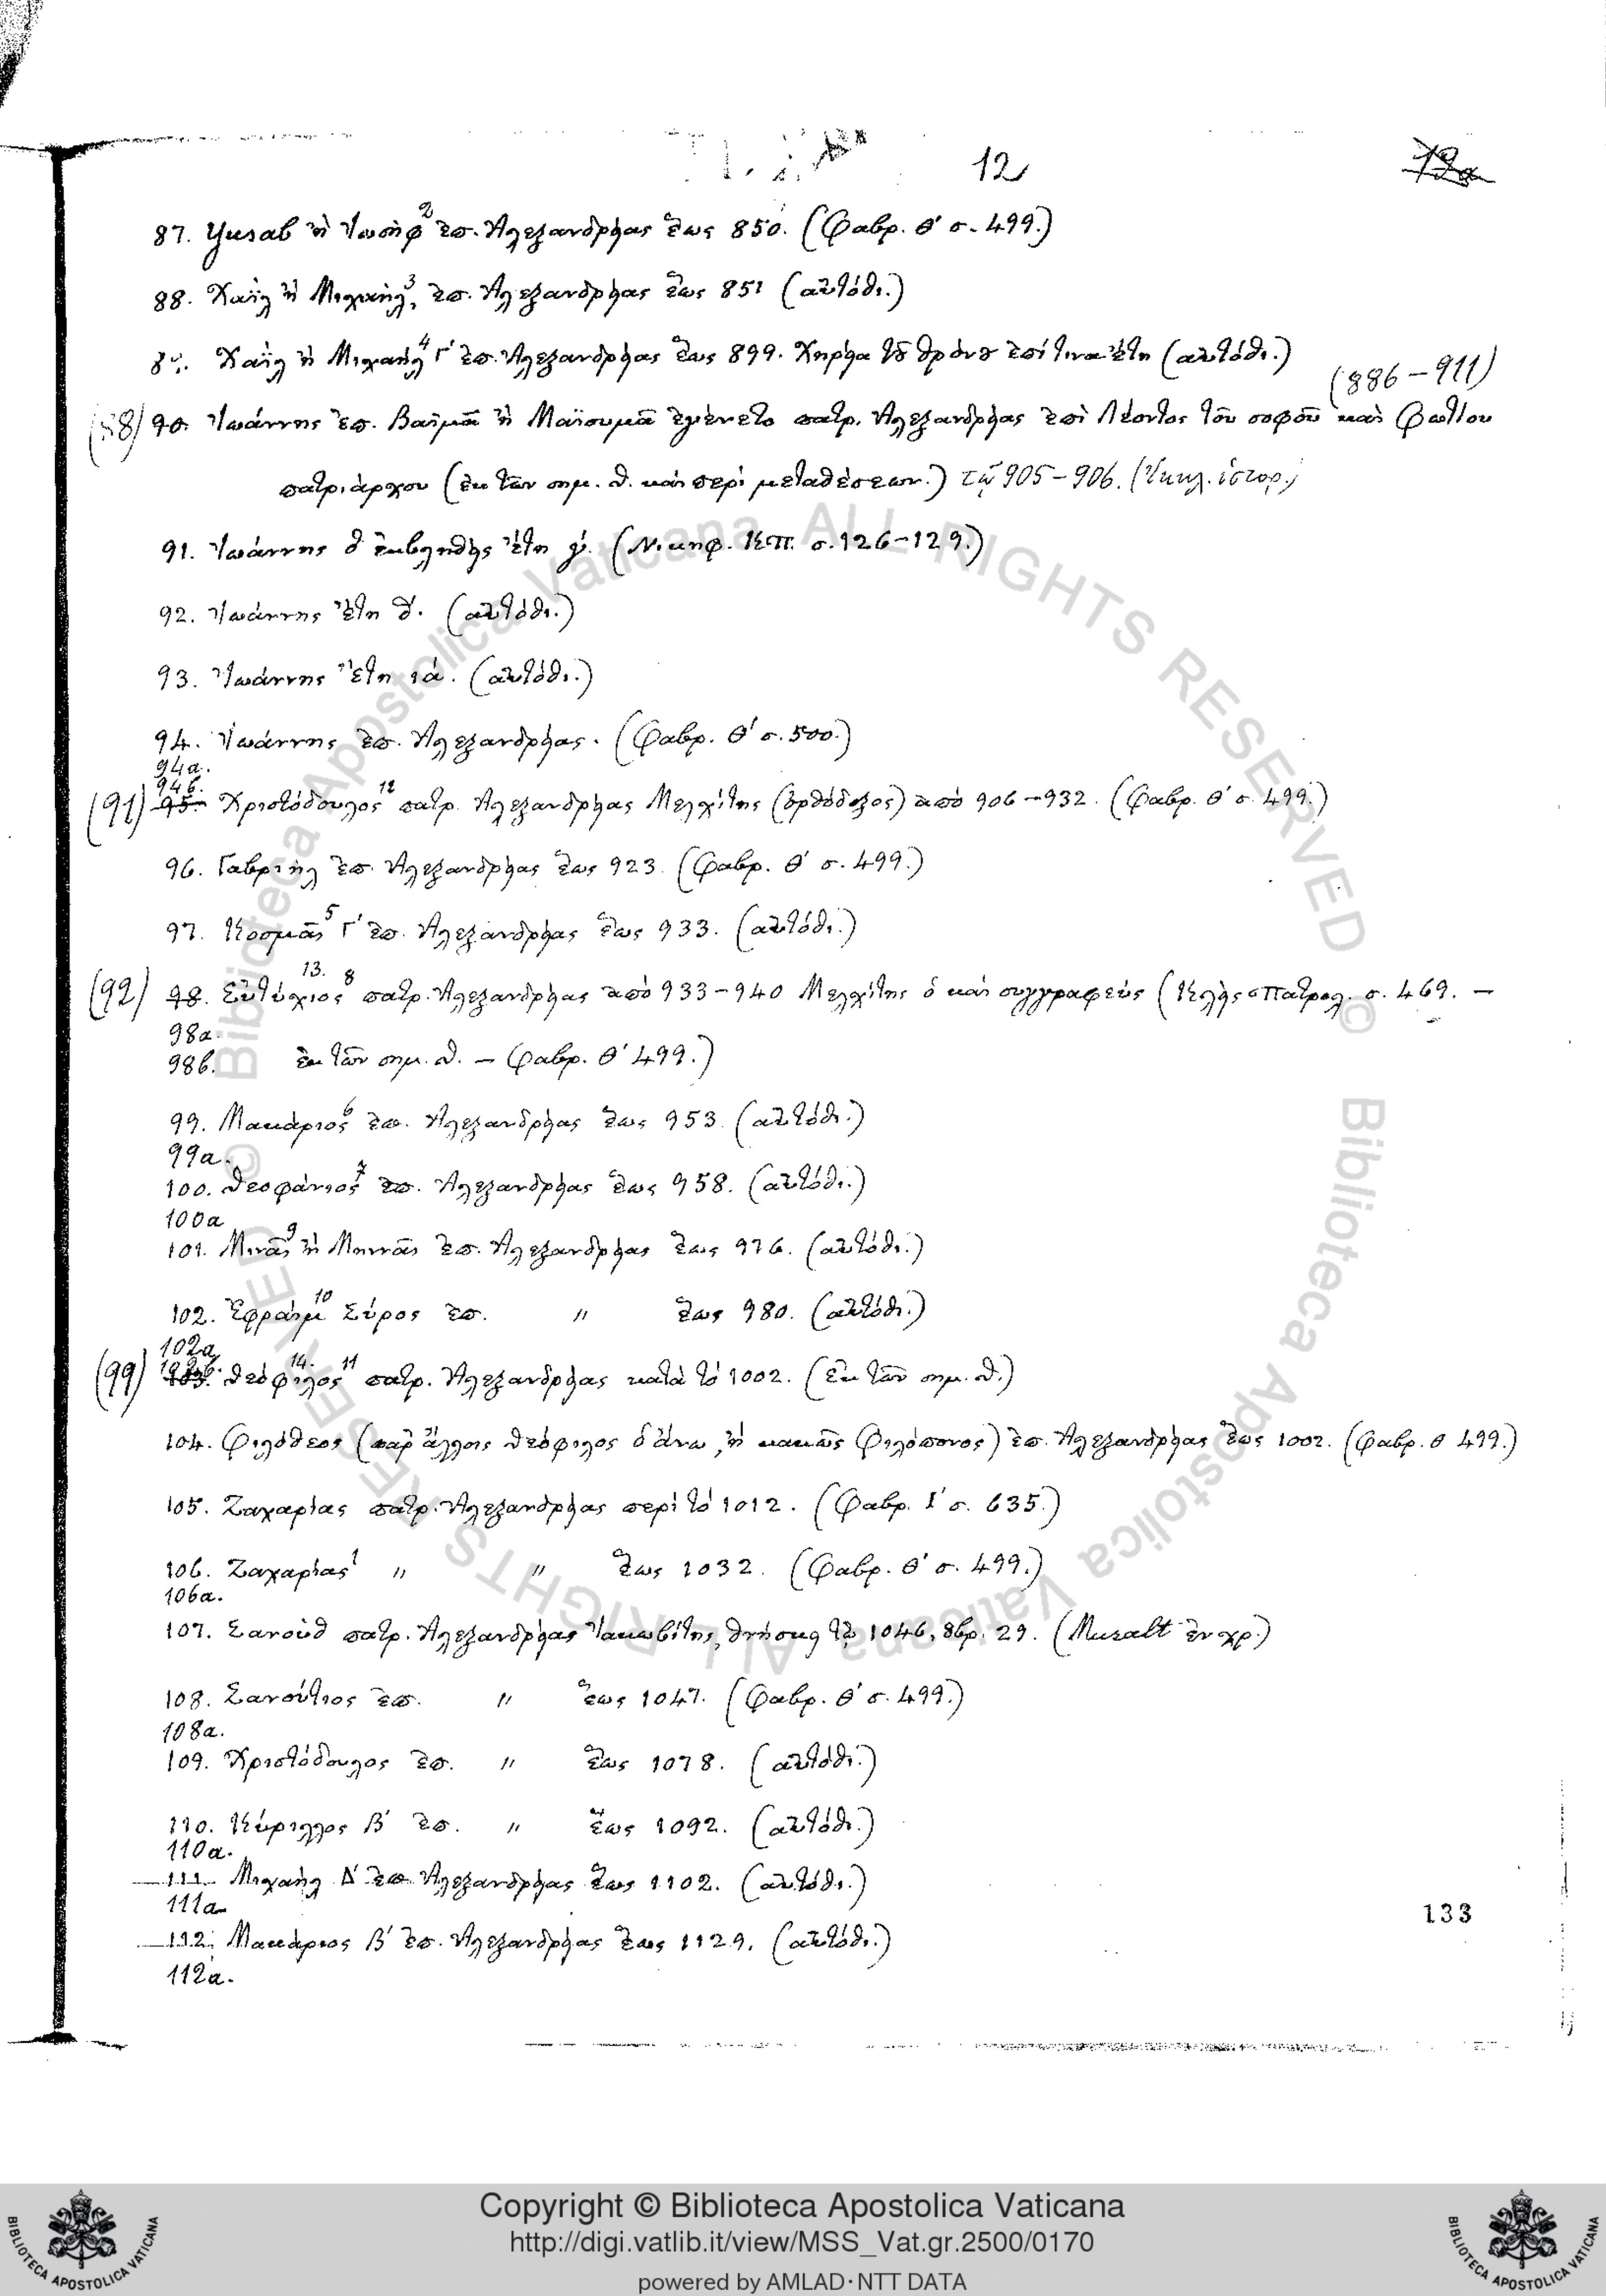 12
87. Yusab ἢ Ἰωσὴφ² ἐπ. Ἀλεξανδρείας ἕως 850. (Φαβρ. Θ' σ. 499.)
88. Χαὴλ ἢ Μιχαὴλ³, ἐπ. Ἀλεξανδρείας ἕως 851 (αὐτόθι.)
Χαὴλ ἢ Μιχαὴλ⁴ Γ' ἐπ. Ἀλεξανδρείας ἕως 899. Χηρεία τοῦ θρόνου ἐπί τινα ἔτη (αὐτόθι.)
(886–911)
90. Ἰωάννης ἐπ. Βαϊμᾶ ἢ Μαϊουμᾶ ἐγένετο πατρ. Ἀλεξανδρείας ἐπὶ Λέοντος τοῦ σοφοῦ καὶ Φωτίου
πατριάρχου (ἐκ τῶν σημ. Θ. καὶ περὶ μεταθέσεων.) τῷ 905–906. (Ἐκκλ. ἱστορ.)
91. Ἰωάννης ὁ ἐκβληθεὶς ἔτη γ'. (Νικηφ. ΚΠ. σ. 126–129.)
92. Ἰωάννης ἔτη δ. (αὐτόθι.)
93. Ἰωάννης ἔτη ια. (αὐτόθι.)
94. Ἰωάννης ἐπ. Ἀλεξανδρείας. (Φαβρ. Θ' σ. 500.)
94a.
94b.
(91) 95. Χριστόδουλος¹² πατρ. Ἀλεξανδρείας Μελχίτης (ὀρθόδοξος) ἀπὸ 906–932. (Φαβρ. Θ' σ. 499.)
96. Γαβριὴλ ἐπ. Ἀλεξανδρείας ἕως 923. (Φαβρ. Θ' σ. 499.)
97. Κοσμᾶς⁵ Γ' ἐπ. Ἀλεξανδρείας ἕως 933. (αὐτόθι.)
(92) 98. Εὐτύχιος¹³· ⁸ πατρ. Ἀλεξανδρείας ἀπὸ 933–940 Μελχίτης ὁ καὶ συγγραφεὺς (Κελὴς Πατρολ. σ. 469. –
98a.
98b. ἐκ τῶν σημ. Θ. – Φαβρ. Θ' 499.)
99. Μακάριος⁶ ἐπ. Ἀλεξανδρείας ἕως 953. (αὐτόθι.)
99a.
100. Θεοφάνιος⁷ ἐπ. Ἀλεξανδρείας ἕως 958. (αὐτόθι.)
100a
101. Μινᾶς⁹ ἢ Μηνᾶς ἐπ. Ἀλεξανδρείας ἕως 976. (αὐτόθι.)
102. Ἐφραὶμ¹⁰ Σύρος ἐπ. " ἕως 980. (αὐτόθι.)
102a
102b.
(99) 103. Θεόφιλος¹⁴· ¹¹ πατρ. Ἀλεξανδρείας κατὰ τὸ 1002. (ἐκ τῶν σημ. Θ.)
104. Φιλόθεος (παρ' ἄλλοις Θεόφιλος ὁ ἄνω, ἢ κακῶς Φιλόπονος) ἐπ. Ἀλεξανδρείας ἕως 1002. (Φαβρ. Θ 499.)
105. Ζαχαρίας πατρ. Ἀλεξανδρείας περὶ τὸ 1012. (Φαβρ. Ι' σ. 635.)
106. Ζαχαρίας¹ " " ἕως 1032. (Φαβρ. Θ' σ. 499.)
106a.
107. Σανοὺθ πατρ. Ἀλεξανδρείας Ἰακωβίτης, θνήσκει τῷ 1046, 8βρ. 29. (Muralt ἐν χρ.)
108. Σανούτιος ἐπ. " ἕως 1047. (Φαβρ. Θ' σ. 499.)
108a.
109. Χριστόδουλος ἐπ. " ἕως 1078. (αὐτόθι.)
110. Κύριλλος Β' ἐπ. " ἕως 1092. (αὐτόθι.)
110a.
111. Μιχαὴλ Δ' ἐπ. Ἀλεξανδρείας ἕως 1102. (αὐτόθι.)
111a.
133
112. Μακάριος Β' ἐπ. Ἀλεξανδρείας ἕως 1129. (αὐτόθι.)
112a.
Copyright © Biblioteca Apostolica Vaticana
http://digi.vatlib.it/view/MSS_Vat.gr.2500/0170
powered by AMLAD·NTT DATA
BIBLIOTECA APOSTOLICA VATICANA
BIBLIOTECA APOSTOLICA VATICANA
© Biblioteca Apostolica Vaticana ALL RIGHTS RESERVED
© Biblioteca Apostolica Vaticana ALL RIGHTS RESERVED